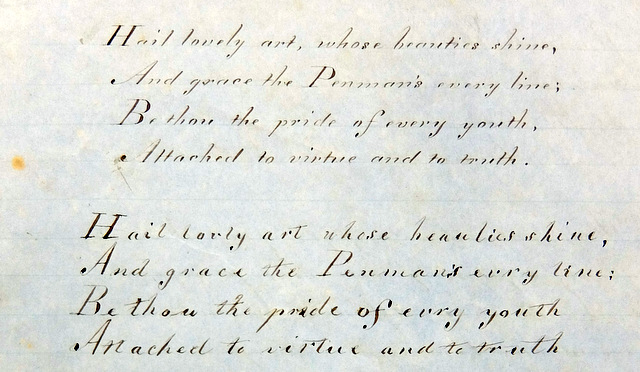 Hail lovely art, whose beauties shine,
And grace the Penman's every line;
Be thou the pride of every youth,
Attached to virtue and to truth.
Hail lovly art whose beauties shine,
And grace the Penman's evry line;
Be thou the pride of evry youth
Attached to virtue and to truth